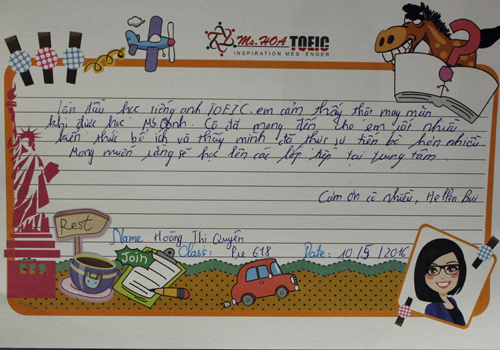 Ms. HOA TOEIC
INSPIRATION MESSENGER
?
Lần đầu học tiếng anh TOEIC, em cảm thấy thật may mắn
khi được học Ms Oanh. Cô đã mang đến cho em rất nhiều
kiến thức bổ ích và thấy mình đã thực sự tiến bộ hơn nhiều
Mong muốn rằng sẽ học lên các lớp tiếp tại trung tâm
Cảm ơn cô nhiều, Hellen Bui
Rest
Name: Hoàng Thị Quyên
Join
Class: Pre 618 Date: 10/5/2016